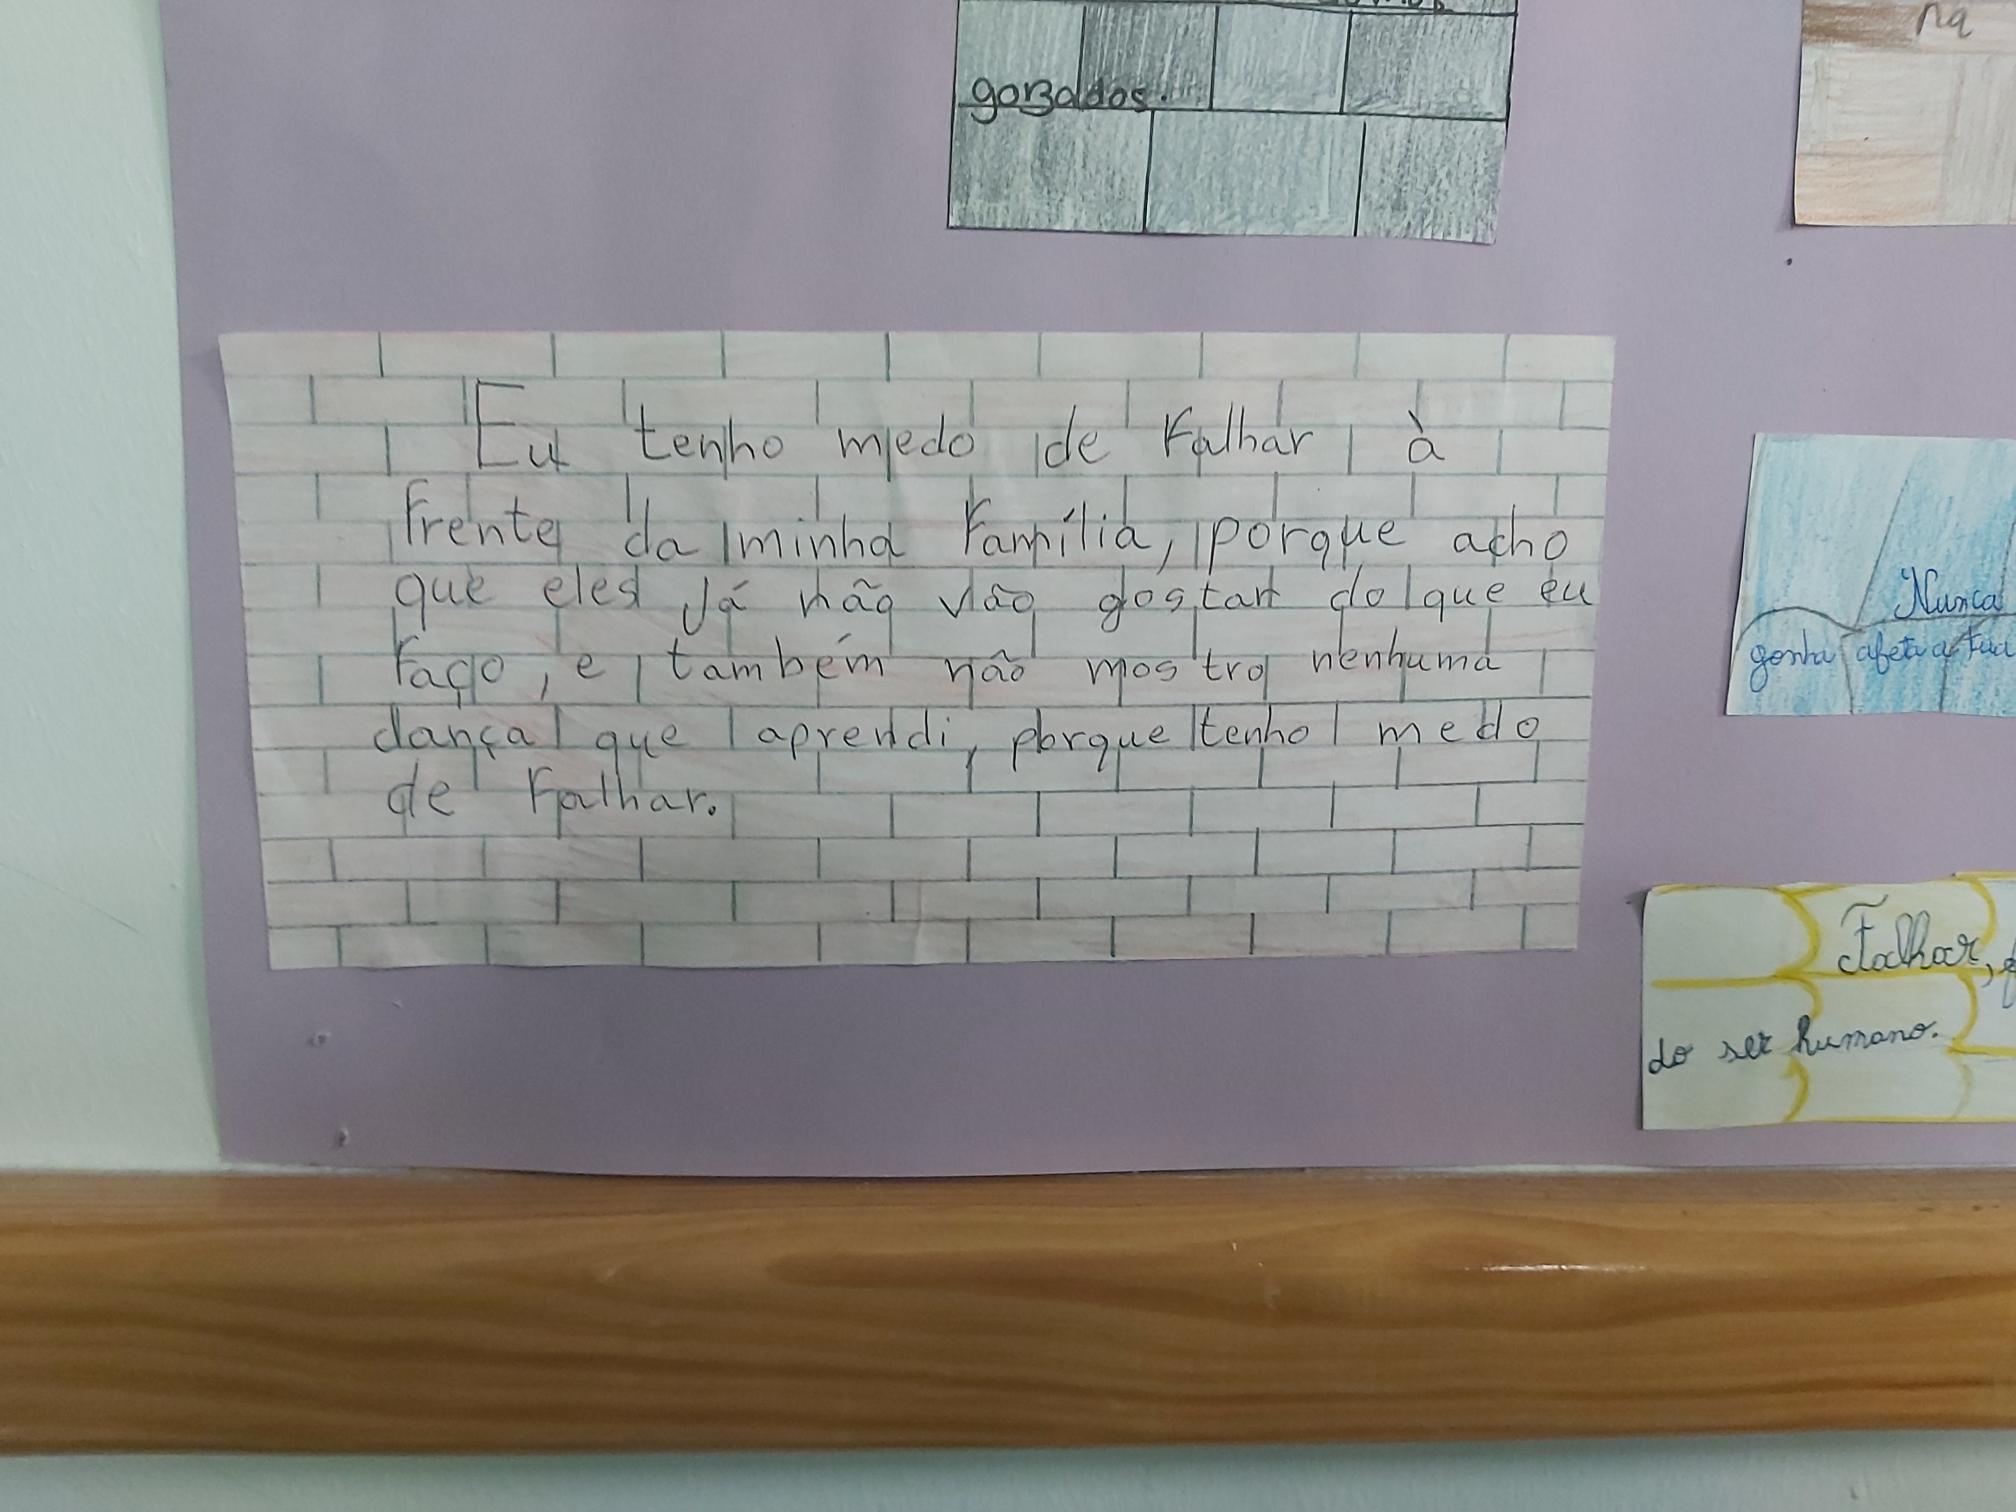 gozados.
na
Eu tenho medo de falhar à
frente da minha família, porque acho
que eles já não vão gostar do que eu
faço, e também não mostro nenhuma
dança que aprendi, porque tenho medo
de falhar.
Nunca
gonha afeta a tua
Falhar,
do ser humano.